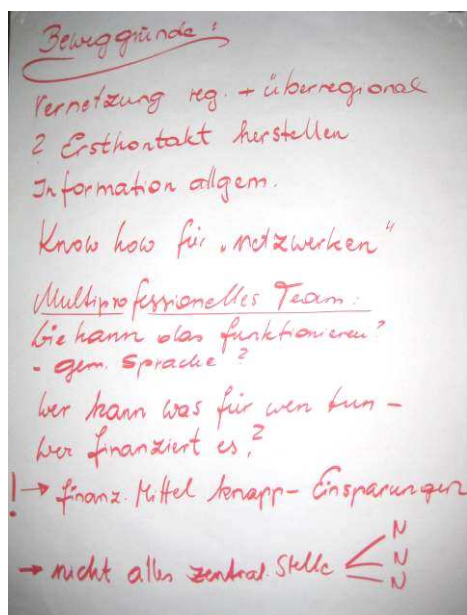 Beweggründe:
Vernetzung reg. + überregional
? Erstkontakt herstellen
Information allgem.
Know how für „netzwerken“
Multiprofessionelles Team:
Wie kann das funktionieren?
- gem. Sprache?
Wer kann was für wen tun -
Wer finanziert es?
! → finanz. Mittel knapp - Einsparungen
N
→ nicht alles zentral. Stelle N
N